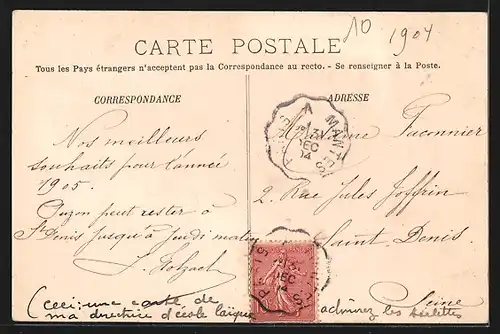 10
1904
CARTE POSTALE
Tous les Pays étrangers n'acceptent pas la Correspondance au recto. - Se renseigner à la Poste.
CORRESPONDANCE
ADRESSE
Nos meilleurs
souhaits pour l'année
1905.
Suzon peut rester à
St Denis jusqu'à jeudi matin
J. Holzach
(ceci: une carte de
ma directrice d'école laïque
A MANTE
31
DEC
04
Madame Faconnier
2. Rue Jules Joffrin
Saint Denis
Seine
admirez les